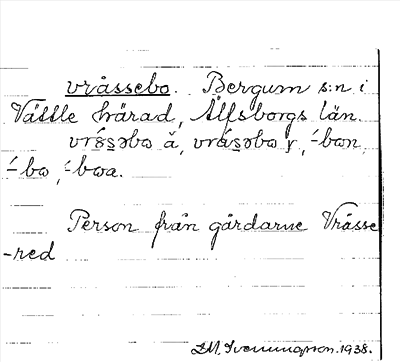 vråssebo. Bergum s:n i
Vättle härad, Älfsborgs län.
vrǻsəbω ă, vrásəbω y, ´-bωn,
´-bω, ´-bωa.
Person från gårdarne Vråsse
-red
1938.